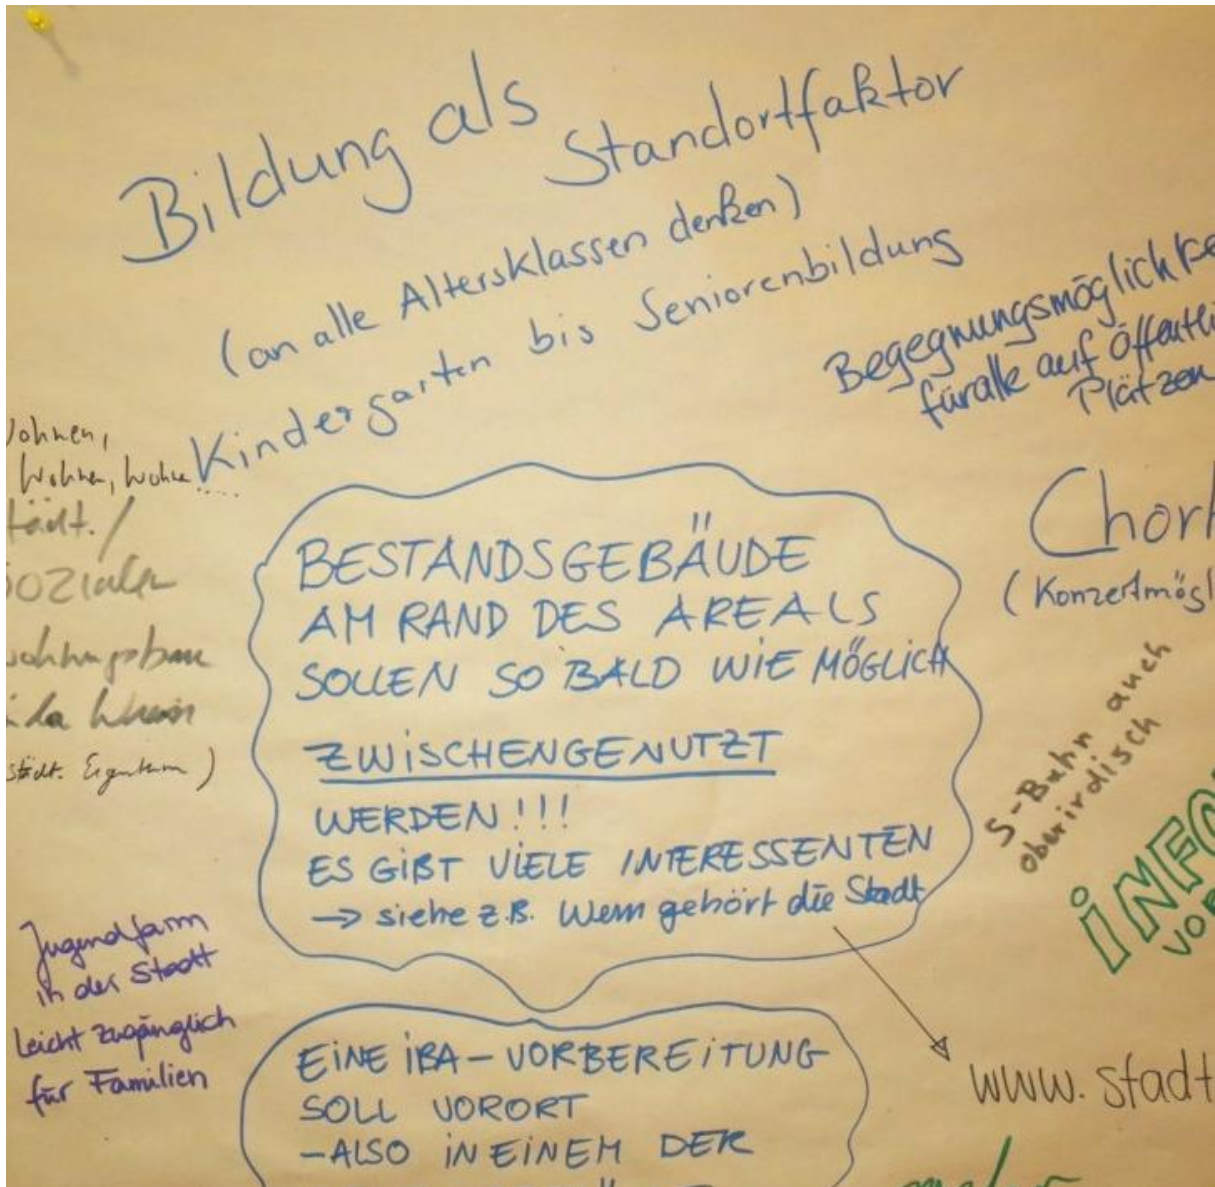 Bildung als
Standortfaktor
(an alle Altersklassen denken)
Kindergarten bis Seniorenbildung
Begegnungsmöglichke
für alle auf öffentli
Plätzen
Wohnen,
Wohnen, Wohne.....
städt./
sozialer
wohnungsbau
städt. Eigentum)
Chor
(Konzertmögl
BESTANDSGEBÄUDE
AM RAND DES AREALS
SOLLEN SO BALD WIE MÖGLICH
ZWISCHENGENUTZT
WERDEN!!!
ES GIBT VIELE INTERESSENTEN
→ siehe z.B. Wem gehört die Stadt
S-Bahn auch
oberirdisch
INFO
VOR
Jugendfarm
in der Stadt
leicht zugänglich
für Familien
www.stadt
EINE IBA-VORBEREITUNG
SOLL VORORT
-ALSO IN EINEM DER